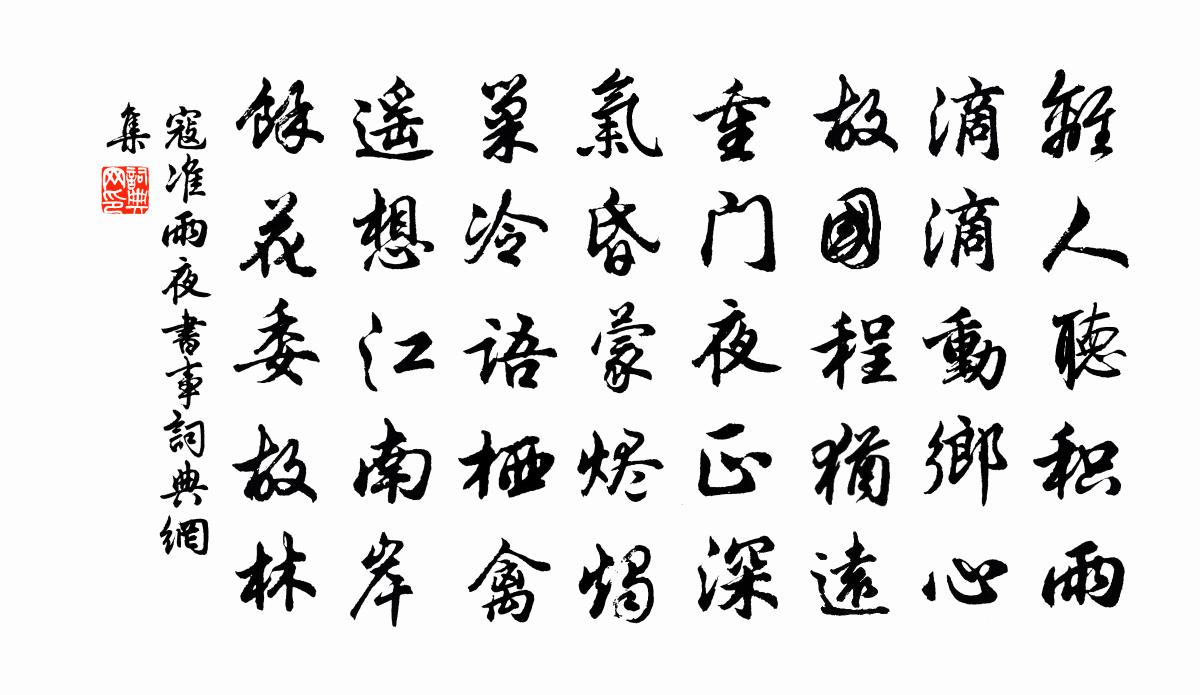 離人聽积雨
滴滴動鄉心
故國程猶遠
重门夜正深
氣昏蒙烬燭
巢冷語栖禽
遥想江南岸
餘花委故林
寇准雨夜書事詞典網
集
詞典
网印